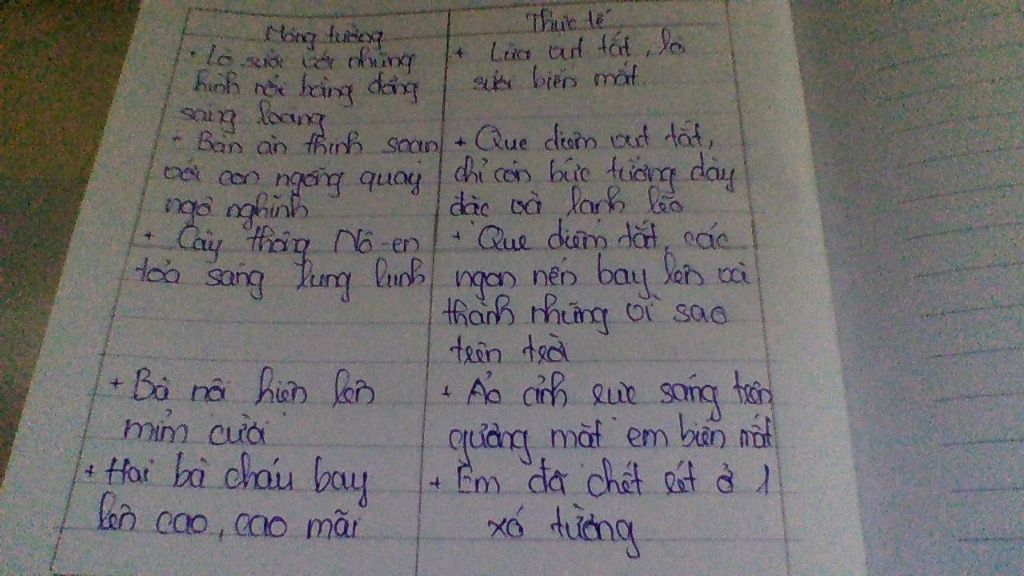 Mộng tưởng
Thực tế
+ Lò sưởi với những
hình nổi bằng đồng
sáng loáng
+ Lửa vụt tắt, lò
sưởi biến mất
+ Bàn ăn thịnh soạn
với con ngỗng quay
ngộ nghĩnh
+ Que diêm vụt tắt,
chỉ còn bức tường dày
đặc và lạnh lẽo
+ Cây thông Nô-en
toả sáng lung linh
+ Que diêm tắt, các
ngọn nến bay lên và
thành những vì sao
trên trời
+ Bà nội hiện lên
mỉm cười
+ Ảo ảnh rực sáng trên
gương mặt em biến mất
+ Hai bà cháu bay
lên cao, cao mãi
+ Em đã chết rét ở 1
xó tường